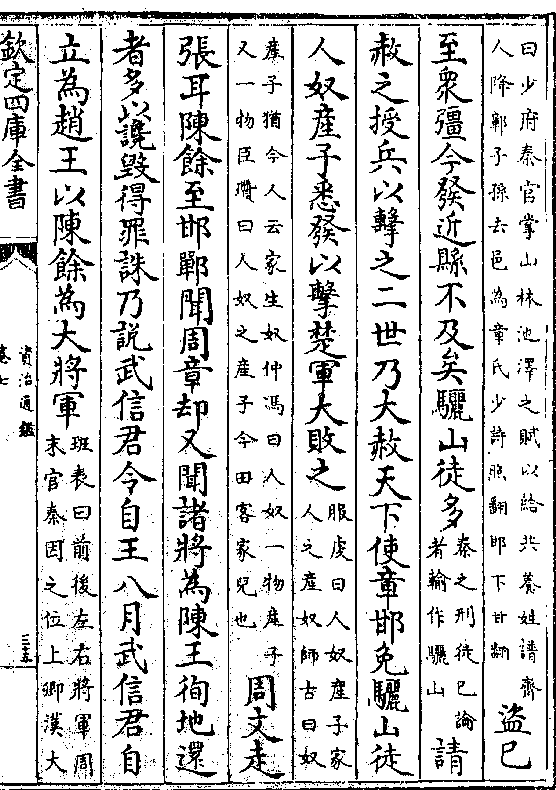 曰少府秦官掌山林池澤之賦以給共養姓譜齊
人降鄣子孫去邑為章氏少詩照翻邯下甘翻
盜已
至衆彊今發近縣不及矣驪山徒多
秦之刑徒已論
者輸作驪山
請
赦之授兵以擊之二世乃大赦天下使章邯免驪山徒
人奴産子悉發以擊楚軍大敗之
服虔曰人奴産子家
人之産奴師古曰奴
産子猶今人云家生奴仲馮曰人奴一物産子
又一物臣瓚曰人奴之産子今田客家兒也
周文走
張耳陳餘至邯鄲聞周章却又聞諸將為陳王徇地還
者多以讒毀得罪誅乃說武信君令自王八月武信君自
立為趙王以陳餘為大將軍
班表曰前後左右將軍周
末官秦因之位上卿漢大
欽定四庫全書
資治通鑑
卷七
三五